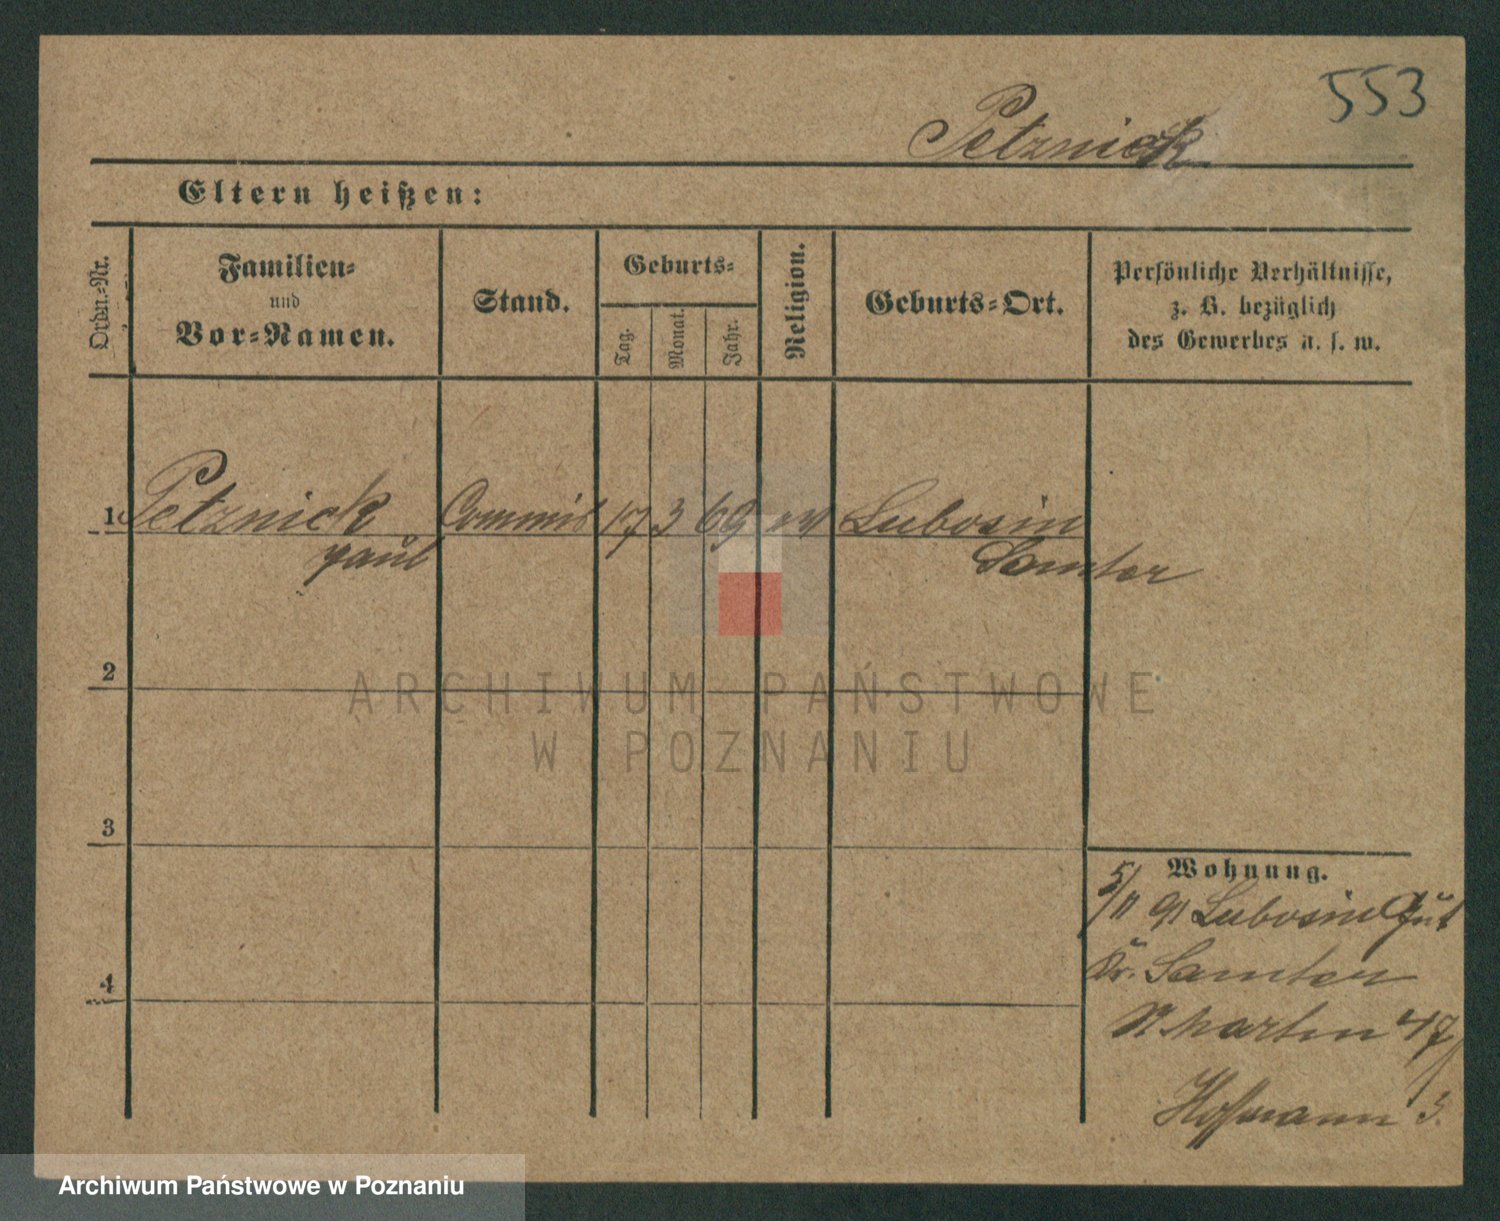 553
Petznick
Eltern heißen:
Ordn.-Nr.
Familien-
und
Vor-Namen.
Stand.
Geburts-
Tag.
Monat.
Jahr.
Religion.
Geburts-Ort.
Persönliche Verhältnisse,
z. B. bezüglich
des Gewerbes u. s. w.
1 Petznick Commis 17 3 69 ev Lubosin
Paul Samter
2
ARCHIWUM PAŃSTWOWE
W POZNANIU
3
Wohnung.
5/11 91 Lubosin Gut
Kr. Samter
4
St Martin 47/
Hoffmann 3.
Archiwum Państwowe w Poznaniu